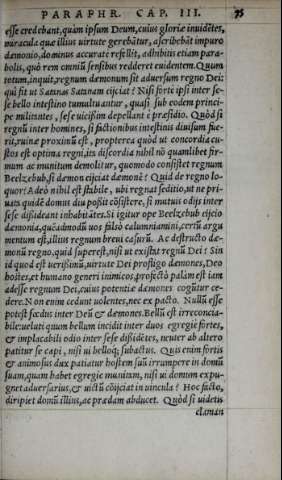 PARAPHR. CAP. III. 75
esse credebant, quàm ipsum Deum, cuius gloriæ inuidētes,
miracula quæ illius uirtute gerebātur, ascribebāt impuro
dæmonio, dominus accurate refellit, adhibitis etiam para-
bolis, quò rem omniũ sensibus redderet euidentem. Quum
totum, inquit, regnum dæmonum sit aduersum regno Dei:
quî fit ut Satanas Satanam eijciat? Nisi forte ipsi inter se-
se bello intestino tumultuantur, quasi sub eodem princi-
pe militantes, sese uicissim depellant è præsidio. Quòd si
regnũ inter homines, si factionibus intestinis diuisum fue-
rit, ruinæ proximũ est, propterea quòd ut concordia cu-
stos est optima regni, ita discordia nihil nõ quamlibet fir-
mum ac munitum demolitur, quomodo consistet regnum
Beelzebub, si dæmon eijciat dæmonẽ? Quid de regno lo-
quor? Adeò nihil est stabile, ubi regnat seditio, ut ne pri-
uata quidẽ domus diu possit cõsistere, si mutuis odijs inter
sese dissideant inhabitãtes. Si igitur ope Beelzebub eijcio
dæmonia, quẽadmodũ uos falsò calumniamini, certũ argu
mentum est, illius regnum breui casurũ. Ac destructo dæ-
monũ regno, quid superest, nisi ut existat regnũ Dei? Sin
id quod est uerissimũ, uirtute Dei profligo dæmones, Deo
hostes, et humano generi inimicos, profectò palàm est iam
adesse regnum Dei, cuius potentiæ dæmones cogũtur ce-
dere. Non enim cedunt uolentes, nec ex pacto. Nullũ esse
potest fœdus inter Deũ & dæmones. Bellũ est irreconcia-
bile: uelati quum bellum incidit inter duos egregie fortes,
& implacabili odio inter sese dissidẽtes, neuter ab altero
patitur se capi, nisi ui belloq; subactus. Quis enim fortis
& animosus dux patiatur hostem suũ irrumpere in domũ
suam, quam habet egregie munitam, nisi ui domum expu-
gnet aduersarius, & uictũ cõijciat in uincula? Hoc facto,
diripiet domũ illius, ac prædam abducet. Quòd si uidetis
claman